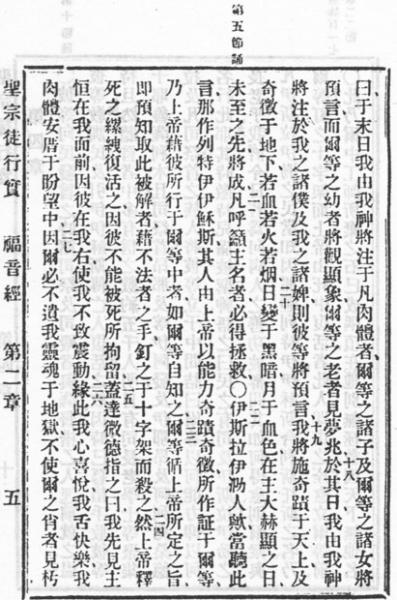 第五節誦
曰于末日我由我神將注于凡肉體者爾等之諸子及爾等之諸女將
十八
預言而爾等之幼者將觀顯象爾等之老者見夢兆於其日我由我神
十九
將注於我之諸僕及我之諸婢則彼等將預言我將施奇蹟于天上及
二十
奇徵于地下若血若火若烟日變于黑暗月于血色在主大赫顯之日
二一
二二
未至之先將成凡呼籲主名者必得拯救○伊斯拉伊泐人歟當聽此
言那作列特伊伊穌斯其人由上帝以能力奇蹟奇徵所作証于爾等
二三
乃上帝藉彼所行于爾等中者如爾等自知之爾等循上帝所定之旨
二四
即預知取此被解者藉不法者之手釘之于十字架而殺之然上帝釋
二五
死之縲絏復活之因彼不能被死所拘留蓋達微德指之曰我先見主
二六
恒在我面前因彼在我右使我不致震動緣此我心喜悅我舌快樂我
二七
肉體安厝于盼望中因爾必不遺我靈魂于地獄不使爾之肖者見朽
聖宗徒行實 福音經 第二章 五